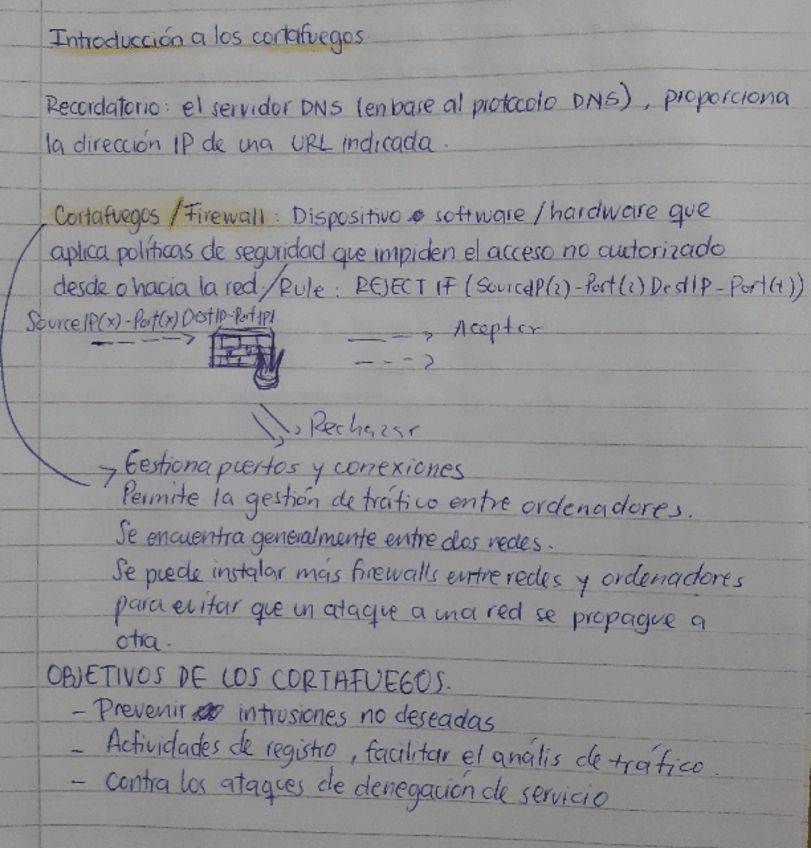 Introducción a los cortafuegos
Recordatorio: el servidor DNS (en base al protocolo DNS), proporciona
la dirección IP de una URL indicada.
Cortafuegos / Firewall: Dispositivo software / hardware que
aplica políticas de seguridad que impiden el acceso no autorizado
desde o hacia la red / Rule: REJECT IF (SourceIP(z)-Port(z) DestIP-Port(t))
SourceIP(x)-Port(x) DestIP-Port(p)
Aceptar
Rechazar
Gestiona puertos y conexiones
Permite la gestión de tráfico entre ordenadores.
Se encuentra generalmente entre dos redes.
Se puede instalar más firewalls entre redes y ordenadores
para evitar que un ataque a una red se propague a
otra.
OBJETIVOS DE LOS CORTAFUEGOS.
- Prevenir intrusiones no deseadas
- Actividades de registro, facilitar el anális de tráfico.
- Contra los ataques de denegación de servicio